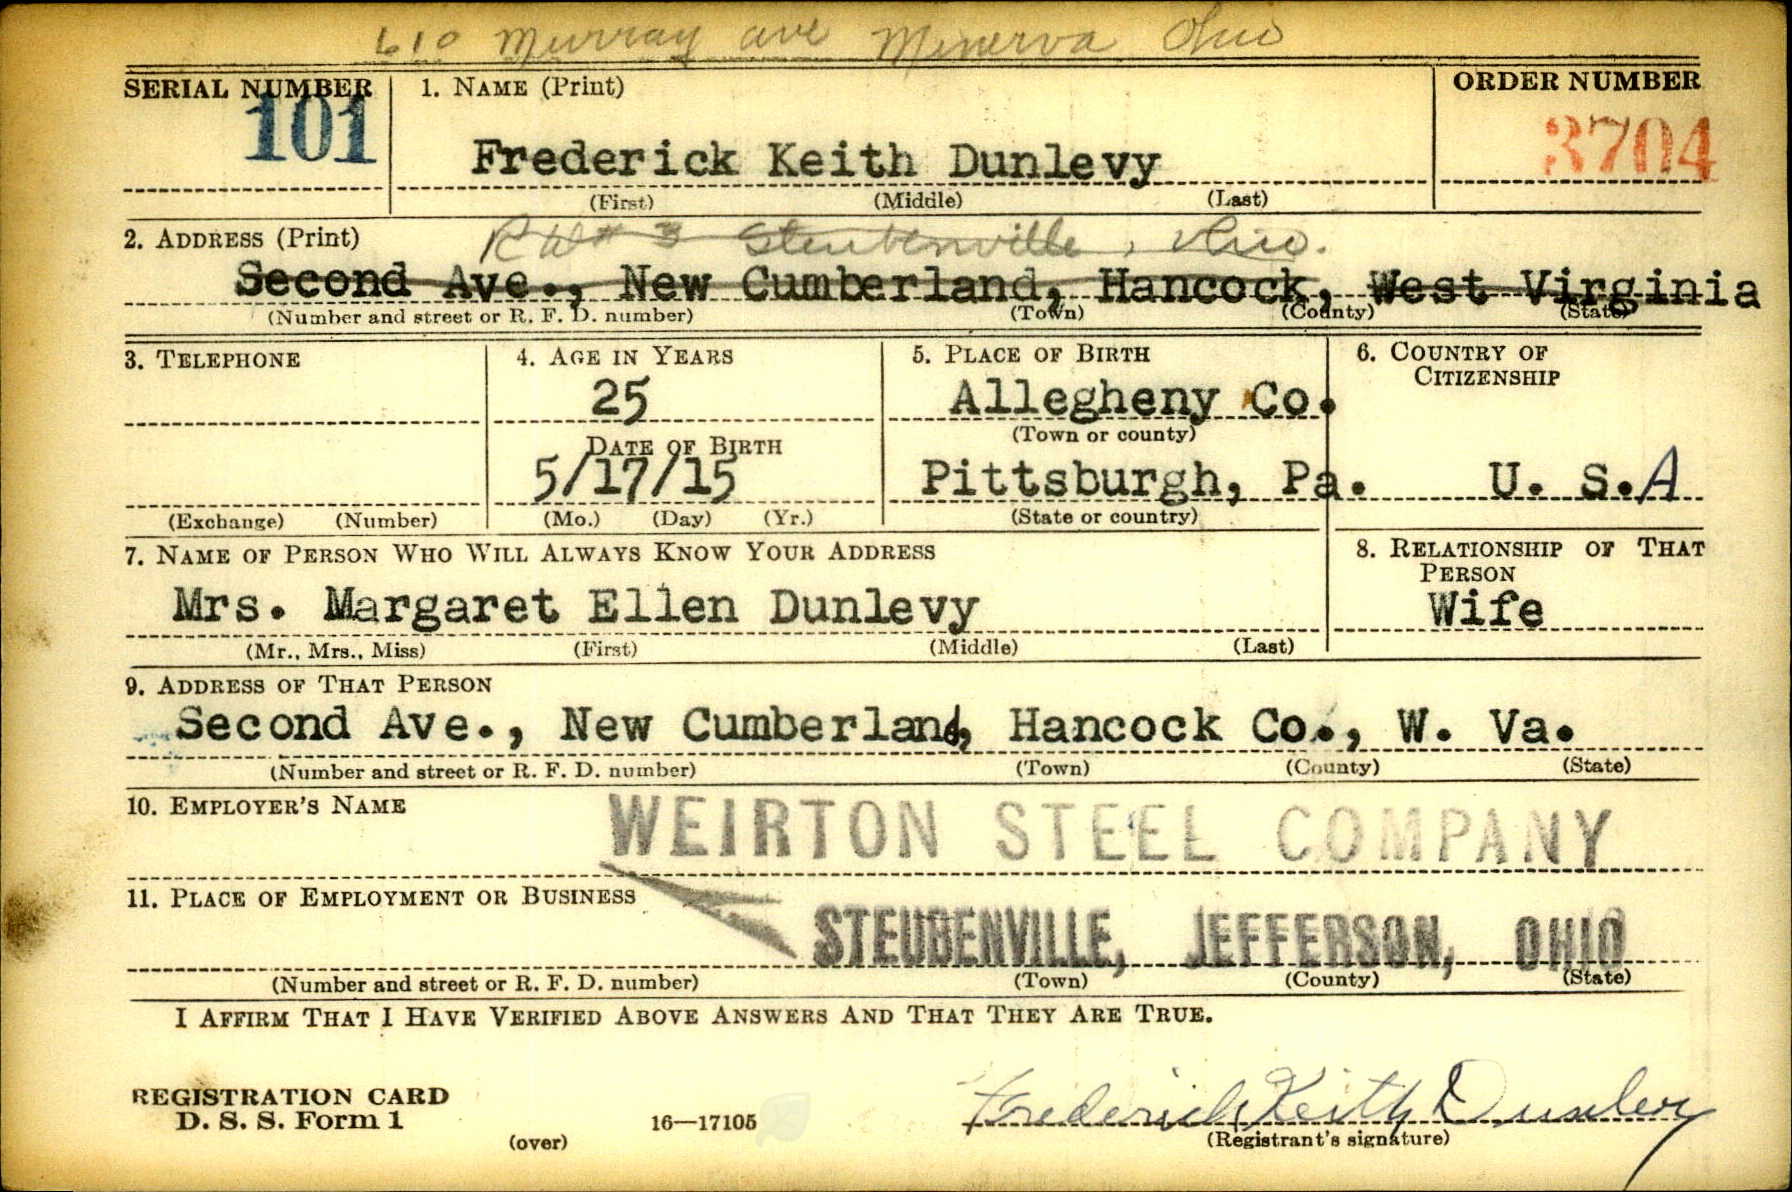 610 Murray ave Minerva Ohio
SERIAL NUMBER
101
1. NAME (Print)
ORDER NUMBER
3704
Frederick Keith Dunlevy
(First) (Middle) (Last)
2. ADDRESS (Print)
# 3 Steubenville, Ohio.
Second Ave., New Cumberland, Hancock, West Virginia
(Number and street or R. F. D. number) (Town) (County) (State)
3. TELEPHONE
4. AGE IN YEARS
5. PLACE OF BIRTH
6. COUNTRY OF
CITIZENSHIP
25
Allegheny Co.
(Town or county)
DATE OF BIRTH
5/17/15
Pittsburgh, Pa.
U. S. A
(Exchange) (Number)
(Mo.) (Day) (Yr.)
(State or country)
7. NAME OF PERSON WHO WILL ALWAYS KNOW YOUR ADDRESS
8. RELATIONSHIP OF THAT
PERSON
Mrs. Margaret Ellen Dunlevy
Wife
(Mr., Mrs., Miss) (First) (Middle) (Last)
9. ADDRESS OF THAT PERSON
Second Ave., New Cumberland, Hancock Co., W. Va.
(Number and street or R. F. D. number) (Town) (County) (State)
10. EMPLOYER'S NAME
WEIRTON STEEL COMPANY
11. PLACE OF EMPLOYMENT OR BUSINESS
STEUBENVILLE, JEFFERSON, OHIO
(Number and street or R. F. D. number) (Town) (County) (State)
I AFFIRM THAT I HAVE VERIFIED ABOVE ANSWERS AND THAT THEY ARE TRUE.
REGISTRATION CARD
D. S. S. Form 1
(over)
16—17105
Frederick Keith Dunlevy
(Registrant's signature)